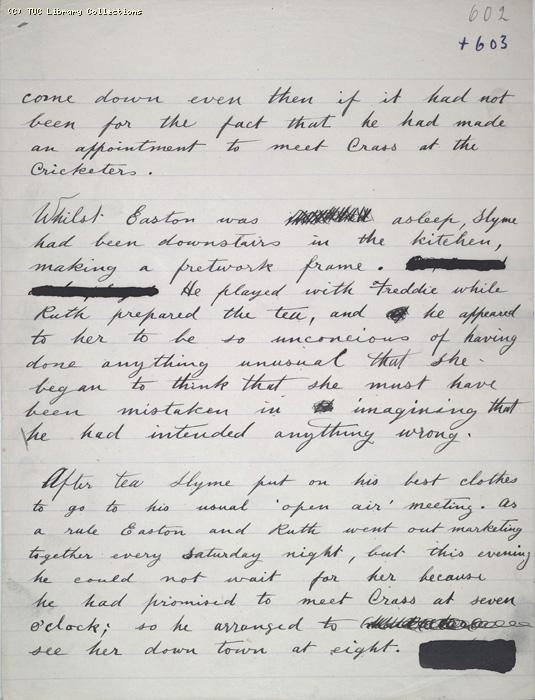 (C) TUC Library Collections
602
+603
come down even then if it had not
been for the fact that he had made
an appointment to meet Crass at the
Cricketers.
Whilst Easton was asleep, Slyme
had been downstairs in the kitchen,
making a fretwork frame.
He played with Freddie while
Ruth prepared the tea, and he appeared
to her to be so unconcious of having
done anything unusual that she
began to think that she must have
been mistaken in imagining that
he had intended anything wrong.
After tea Slyme put on his best clothes
to go to his usual 'open air' meeting. As
a rule Easton and Ruth went out marketing
together every Saturday night, but this evening
he could not wait for her because
he had promised to meet Crass at seven
o'clock; so he arranged to
see her down town at eight.